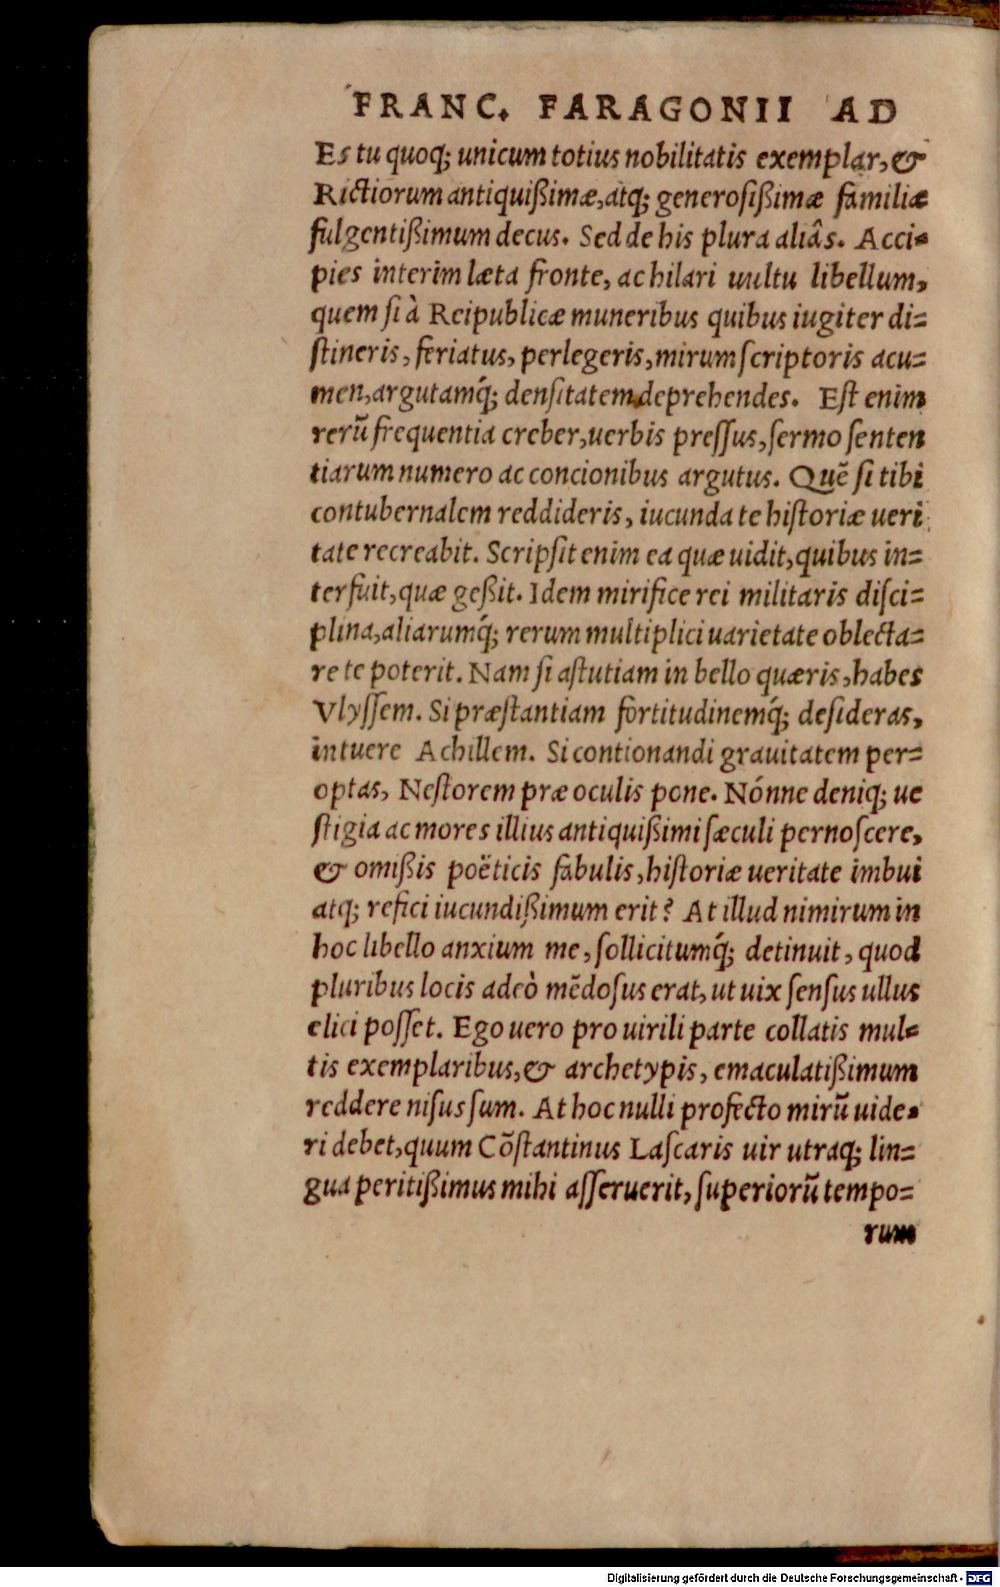 FRANC. FARAGONII AD
Es tu quoq; unicum totius nobilitatis exemplar, &
Rictiorum antiquißimæ, atq; generosißimæ familiæ
fulgentißimum decus. Sed de his plura aliâs. Acci-
pies interim læta fronte, ac hilari uultu libellum,
quem si à Reipublicæ muneribus quibus iugiter di=
ſtineris, feriatus, perlegeris, mirum ſcriptoris acu=
men, argutamq́; denſitatem deprehendes. Eſt enim
rerũ frequentia creber, uerbis preſſus, ſermo ſenten
tiarum numero ac concionibus argutus. Quẽ ſi tibi
contubernalem reddideris, iucunda te hiſtoriæ ueri
tate recreabit. Scripſit enim ea quæ uidit, quibus in=
terfuit, quæ geßit. Idem mirifice rei militaris diſci=
plina, aliarumq́; rerum multiplici uarietate oblecta=
re te poterit. Nam ſi aſtutiam in bello quæris, habes
Vlyſſem. Si præſtantiam fortitudinemq́; deſideras,
intuere Achillem. Si contionandi grauitatem per=
optas, Neſtorem præ oculis pone. Nónne deniq; ue
ſtigia ac mores illius antiquißimi ſæculi pernoſcere,
& omißis poëticis fabulis, hiſtoriæ ueritate imbui
atq; refici iucundißimum erit? At illud nimirum in
hoc libello anxium me, ſollicitumq́; detinuit, quod
pluribus locis adeò mẽdoſus erat, ut uix ſenſus ullus
elici poſſet. Ego uero pro uirili parte collatis mul-
tis exemplaribus, & archetypis, emaculatißimum
reddere niſus ſum. At hoc nulli profecto mirũ uide-
ri debet, quum Cõſtantinus Laſcaris uir utraq; lin=
gua peritißimus mihi aſſeruerit, ſuperiorũ tempo=
rum
Digitalisierung gefördert durch die Deutsche Forschungsgemeinschaft - DFG